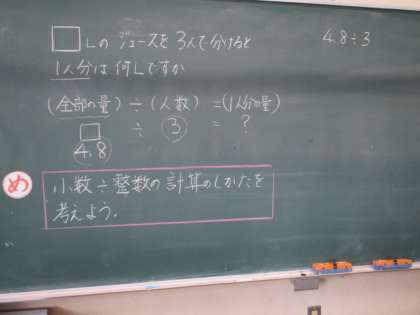 □Lのジュースを3人で分けると
1人分は何Lですか
4.8÷3
(全部の量)÷(人数)=(1人分の量)
□ ÷ 3 = ?
4.8
め
小数÷整数の計算のしかたを
考えよう。